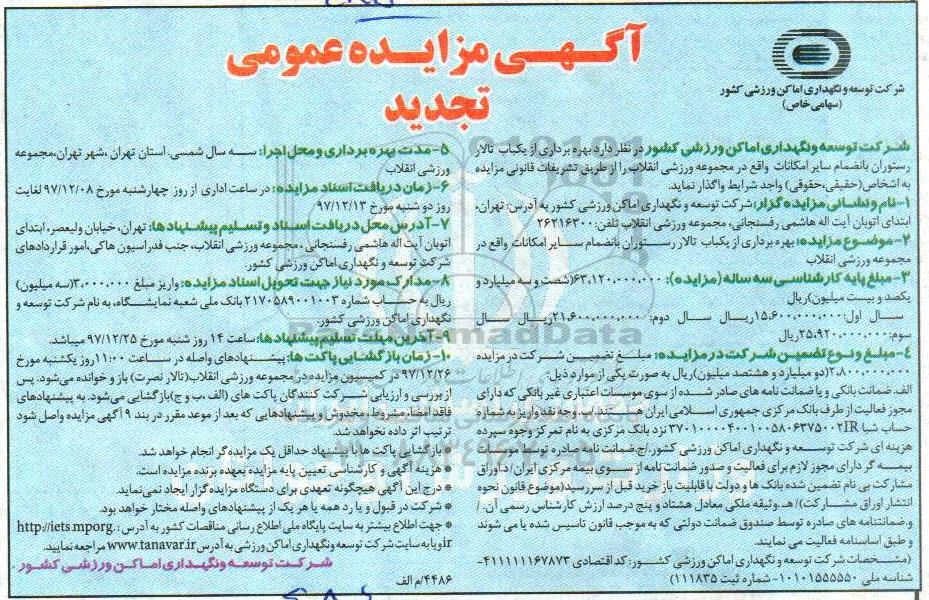 آگهی مزایده عمومی
تجدید
شرکت توسعه و نگهداری اماکن ورزشی کشور
(سهامی خاص)
شرکت توسعه ونگهداری اماکن ورزشی کشور در نظر دارد بهره برداری از یکباب تالار
رستوران بانضمام سایر امکانات واقع در مجموعه ورزشی انقلاب را از طریق تشریفات قانونی مزایده
به اشخاص(حقیقی،حقوقی) واجد شرایط واگذار نماید.
۱-نام و نشانی مزایده گزار: شرکت توسعه و نگهداری اماکن ورزشی کشور به آدرس: تهران،
ابتدای اتوبان آیت اله هاشمی رفسنجانی، مجموعه ورزشی انقلاب تلفن: ۲۶۲۱۶۳۰۰
۲-موضوع مزایده: بهره برداری از یکباب تالار رستوران بانضمام سایر امکانات واقع در
مجموعه ورزشی انقلاب
۳-مبلغ پایه کارشناسی سه ساله (مزایده): ۶۳،۱۲۰،۰۰۰،۰۰۰(شصت و سه میلیارد و
یکصد و بیست میلیون)ریال
سال اول:۱۵،۶۰۰،۰۰۰،۰۰۰ریال سال دوم: ۲۱،۶۰۰،۰۰۰،۰۰۰ریال سال
سوم:۲۵،۹۲۰،۰۰۰،۰۰۰ریال
۴-مبلغ و نوع تضمین شرکت در مزایده: مبلغ تضمین شرکت در مزایده
۲،۸۰۰،۰۰۰،۰۰۰(دو میلیارد و هشتصد میلیون)ریال به صورت یکی از موارد ذیل:
الف.ضمانت بانکی و یا ضمانت نامه های صادر شده از سوی موسسات اعتباری غیر بانکی که دارای
مجوز فعالیت از طرف بانک مرکزی جمهوری اسلامی ایران هستند/ب.وجه نقد واریز به شماره
حساب شبا IR۳۷۰۱۰۰۰۰۴۰۰۱۰۰۵۸۰۶۳۷۵۰۰۲ نزد بانک مرکزی به نام تمرکز وجوه سپرده
هزینه ای شرکت توسعه و نگهداری اماکن ورزشی کشور/ج.ضمانت نامه صادره توسط موسسات
بیمه گر دارای مجوز لازم برای فعالیت و صدور ضمانت نامه از سوی بیمه مرکزی ایران/د.اوراق
مشارکت بی نام تضمین شده بانک ها و دولت با قابلیت باز خرید قبل از سررسید(موضوع قانون نحوه
انتشار اوراق مشارکت)/هـ.وثیقه ملکی معادل هشتاد و پنج درصد ارزش کارشناس رسمی آن /
و.ضمانتنامه های صادره توسط صندوق ضمانت دولتی که به موجب قانون تاسیس شده یا می شوند
و طبق اساسنامه فعالیت می نمایند.
(مشخصات شرکت توسعه و نگهداری اماکن ورزشی کشور: کد اقتصادی ۴۱۱۱۱۱۱۶۷۸۷۳-
شناسه ملی ۱۰۱۰۱۵۵۵۵۵۰-شماره ثبت ۱۱۱۸۳۵)
۵-مدت بهره برداری و محل اجرا: سه سال شمسی. استان تهران ،شهر تهران،مجموعه
ورزشی انقلاب
۶-زمان دریافت اسناد مزایده: در ساعت اداری از روز چهارشنبه مورخ ۹۷/۱۲/۰۸ لغایت
روز دو شنبه مورخ ۹۷/۱۲/۱۳
۷-آدرس محل دریافت اسناد و تسلیم پیشنهادها: تهران، خیابان ولیعصر، ابتدای
اتوبان آیت اله هاشمی رفسنجانی ، مجموعه ورزشی انقلاب، جنب فدراسیون هاکی،امور قراردادهای
شرکت توسعه و نگهداری اماکن ورزشی کشور.
۸-مدارک مورد نیاز جهت تحویل اسناد مزایده: واریز مبلغ ۳،۰۰۰،۰۰۰(سه میلیون)
ریال به حساب شماره ۲۱۷۰۵۸۹۰۰۱۰۰۳ بانک ملی شعبه نمایشگاه، به نام شرکت توسعه و
نگهداری اماکن ورزشی کشور
۹-آخرین مهلت تسلیم پیشنهادها: ساعت ۱۴ روز شنبه مورخ ۹۷/۱۲/۲۵ میباشد.
۱۰-زمان بازگشایی پاکت ها: پیشنهادهای واصله در ساعت ۱۱:۰۰ روز یکشنبه مورخ
۹۷/۱۲/۲۶ در کمیسیون مزایده در مجموعه ورزشی انقلاب(تالار نصرت) باز و خوانده می‌شود. پس
از بررسی و ارزیابی شرکت کنندگان پاکت های (الف،ب و ج)بازگشایی می‌شود. به پیشنهادهای
فاقد امضا، مشروط، مخدوش و پیشنهادهایی که بعد از موعد مقرر در بند ۹ آگهی مزایده واصل شود
ترتیب اثر داده نخواهد شد.
* بازگشایی پاکت ها با پیشنهاد حداقل یک مزایده گر انجام خواهد شد.
* هزینه آگهی و کارشناسی تعیین پایه مزایده بعهده برنده مزایده است.
* درج این آگهی هیچگونه تعهدی برای دستگاه مزایده گزار ایجاد نمی‌نماید.
* شرکت در قبول و یا رد همه یا هر یک از پیشنهادهای واصله مختار خواهد بود.
* جهت اطلاع بیشتر به سایت پایگاه ملی اطلاع رسانی مناقصات کشور به آدرس: http://iets.mporg.
ir و یا به سایت شرکت توسعه و نگهداری اماکن ورزشی به آدرس www.tanavar.ir مراجعه نمایید.
شرکت توسعه ونگهداری اماکن ورزشی کشور
۴۴۸۶/م الف
ParsNamadData